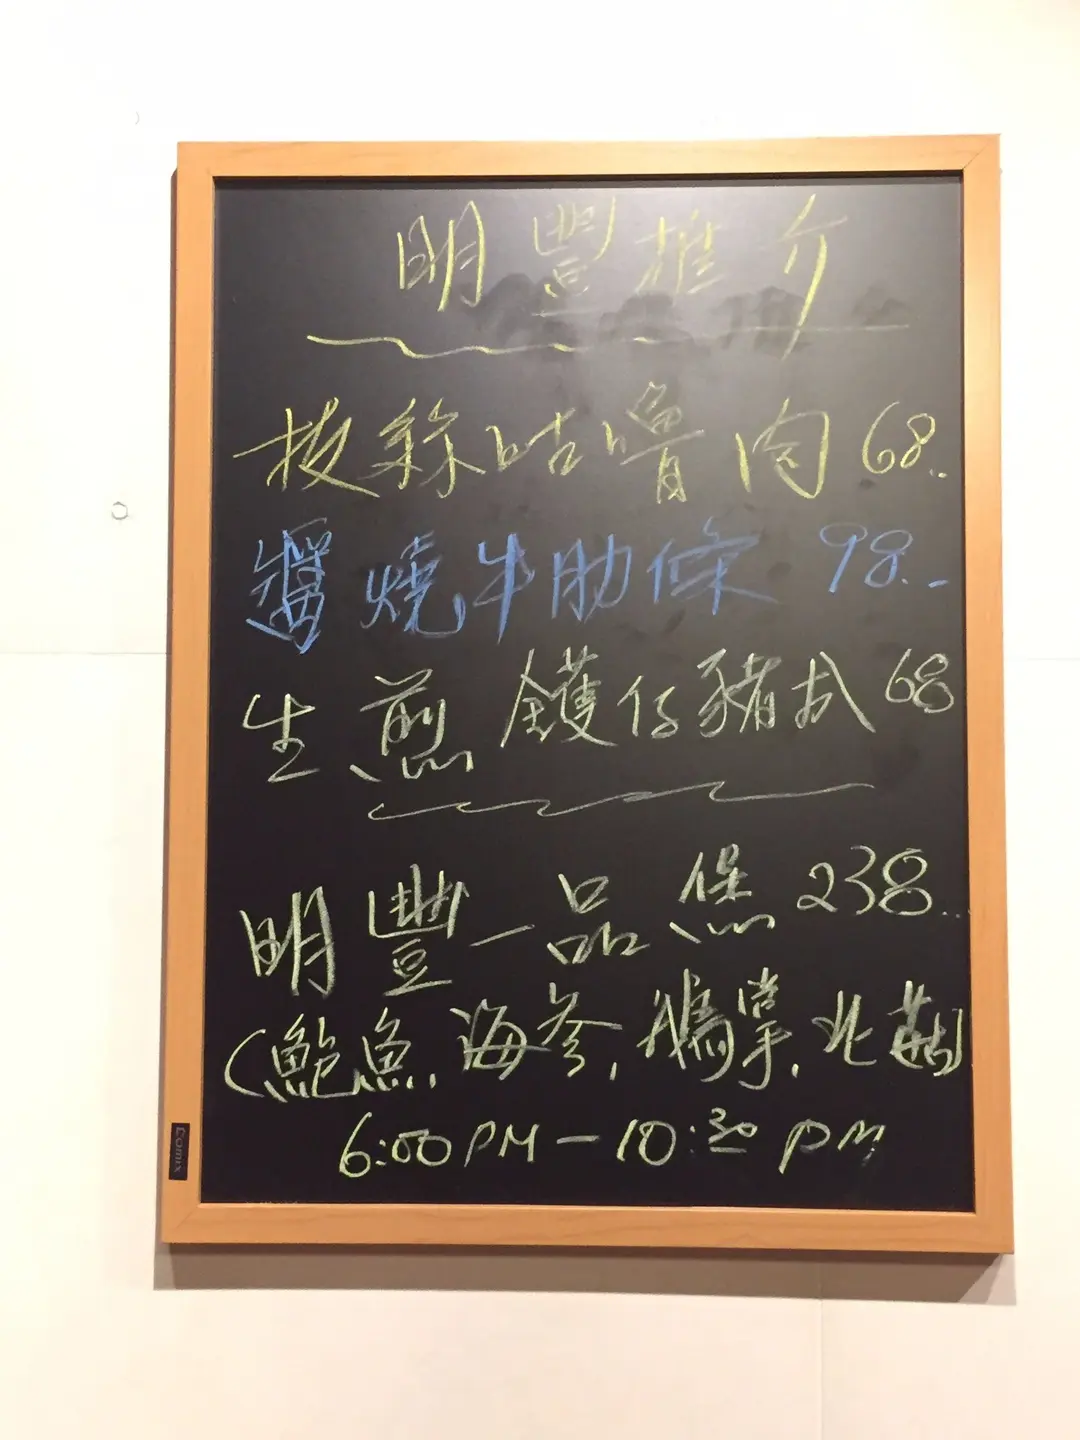 明豐推介
拔絲咕嚕肉 68..
醬燒牛肋條 98..
生煎鑊仔豬扒 68
明豐一品煲 238...
(鮑魚, 海參, 鵝掌, 北菇)
6:00 PM - 10:30 PM
Comix